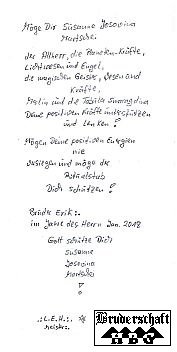 Möge Dir Susanne Jesowina
Martschei
der Allherr, die Planeten-Kräfte,
Lichtwesen und Engel,
die magischen Geister, Wesen und
Kräfte,
Merlin und die Tabula Smaragdina
Deine positiven Kräfte unterstützen
und lenken!
Mögen Deine positiven Energien
nie
versiegen und möge der
Ritualstab
Dich schützen!
Bruder Erik:.
im Jahre des Herrn Jan. 2018
Gott schütze Dich
Susanne
Jesowina
Martschei
.:L.E.H.:.
Meister:.
Bruderschaft
HBG